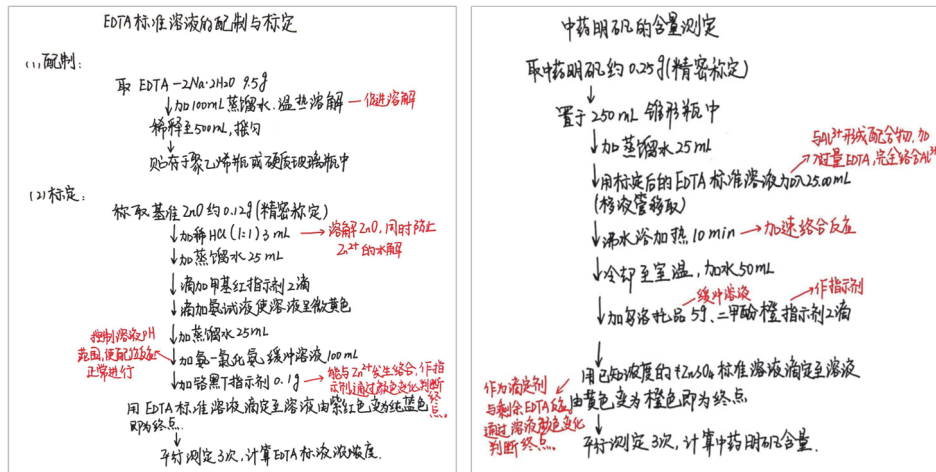 EDTA标准溶液的配制与标定
(1)配制:
取 EDTA-2Na·2H2O 9.5g
加100mL蒸馏水、温热溶解 — 促进溶解
稀释至500mL,摇匀
贮存于聚乙烯瓶或硬质玻璃瓶中
(2)标定:
称取基准ZnO约0.12g(精密称定)
加稀HCl(1:1)3mL → 溶解ZnO,同时防止
Zn²⁺的水解
加蒸馏水25mL
滴加甲基红指示剂2滴
滴加氨试液使溶液呈微黄色
加蒸馏水25mL
控制溶液pH
范围,使配位反应
正常进行
加氨-氯化氨缓冲溶液100mL
加铬黑T指示剂0.1g
能与Zn²⁺发生络合,作指
示剂通过颜色变化判断
终点。
用EDTA标准溶液滴定至溶液由紫红色变为纯蓝色
即为终点.
平行测定3次,计算EDTA标液浓度.
中药明矾的含量测定
取中药明矾约0.25g(精密称定)
置于250mL锥形瓶中
加蒸馏水25mL
与Al³⁺形成配合物,加
过量EDTA,完全络合Al³⁺
用标定后的EDTA标准溶液加入25.00mL
(移液管移取)
沸水浴加热10min → 加速络合反应
冷却至室温,加水50mL
缓冲溶液
作指示剂
加乌洛托品5g、二甲酚橙指示剂2滴
用已知浓度的ZnSO4标准溶液滴定至溶液
由黄色变为橙色即为终点
作为滴定剂
与剩余EDTA反应
通过溶液颜色变化
判断终点。
平行测定3次,计算中药明矾含量.